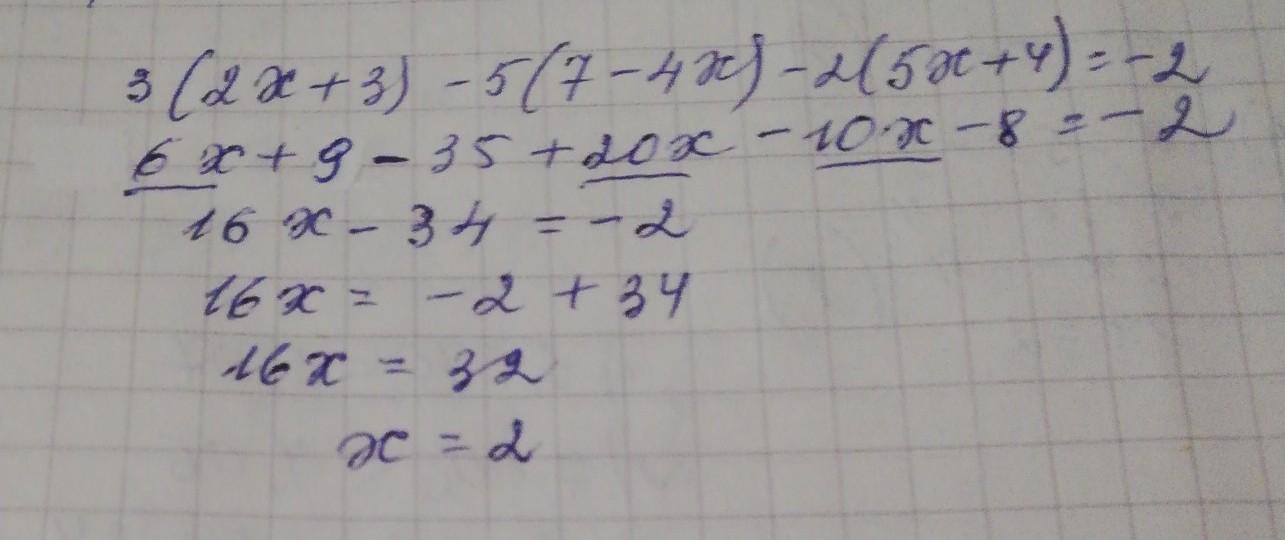 3(2x+3) -5(7-4x) -2(5x+4)=-2
6x+9-35+20x-10x-8=-2
16x-34=-2
16x=-2+34
16x=32
x=2